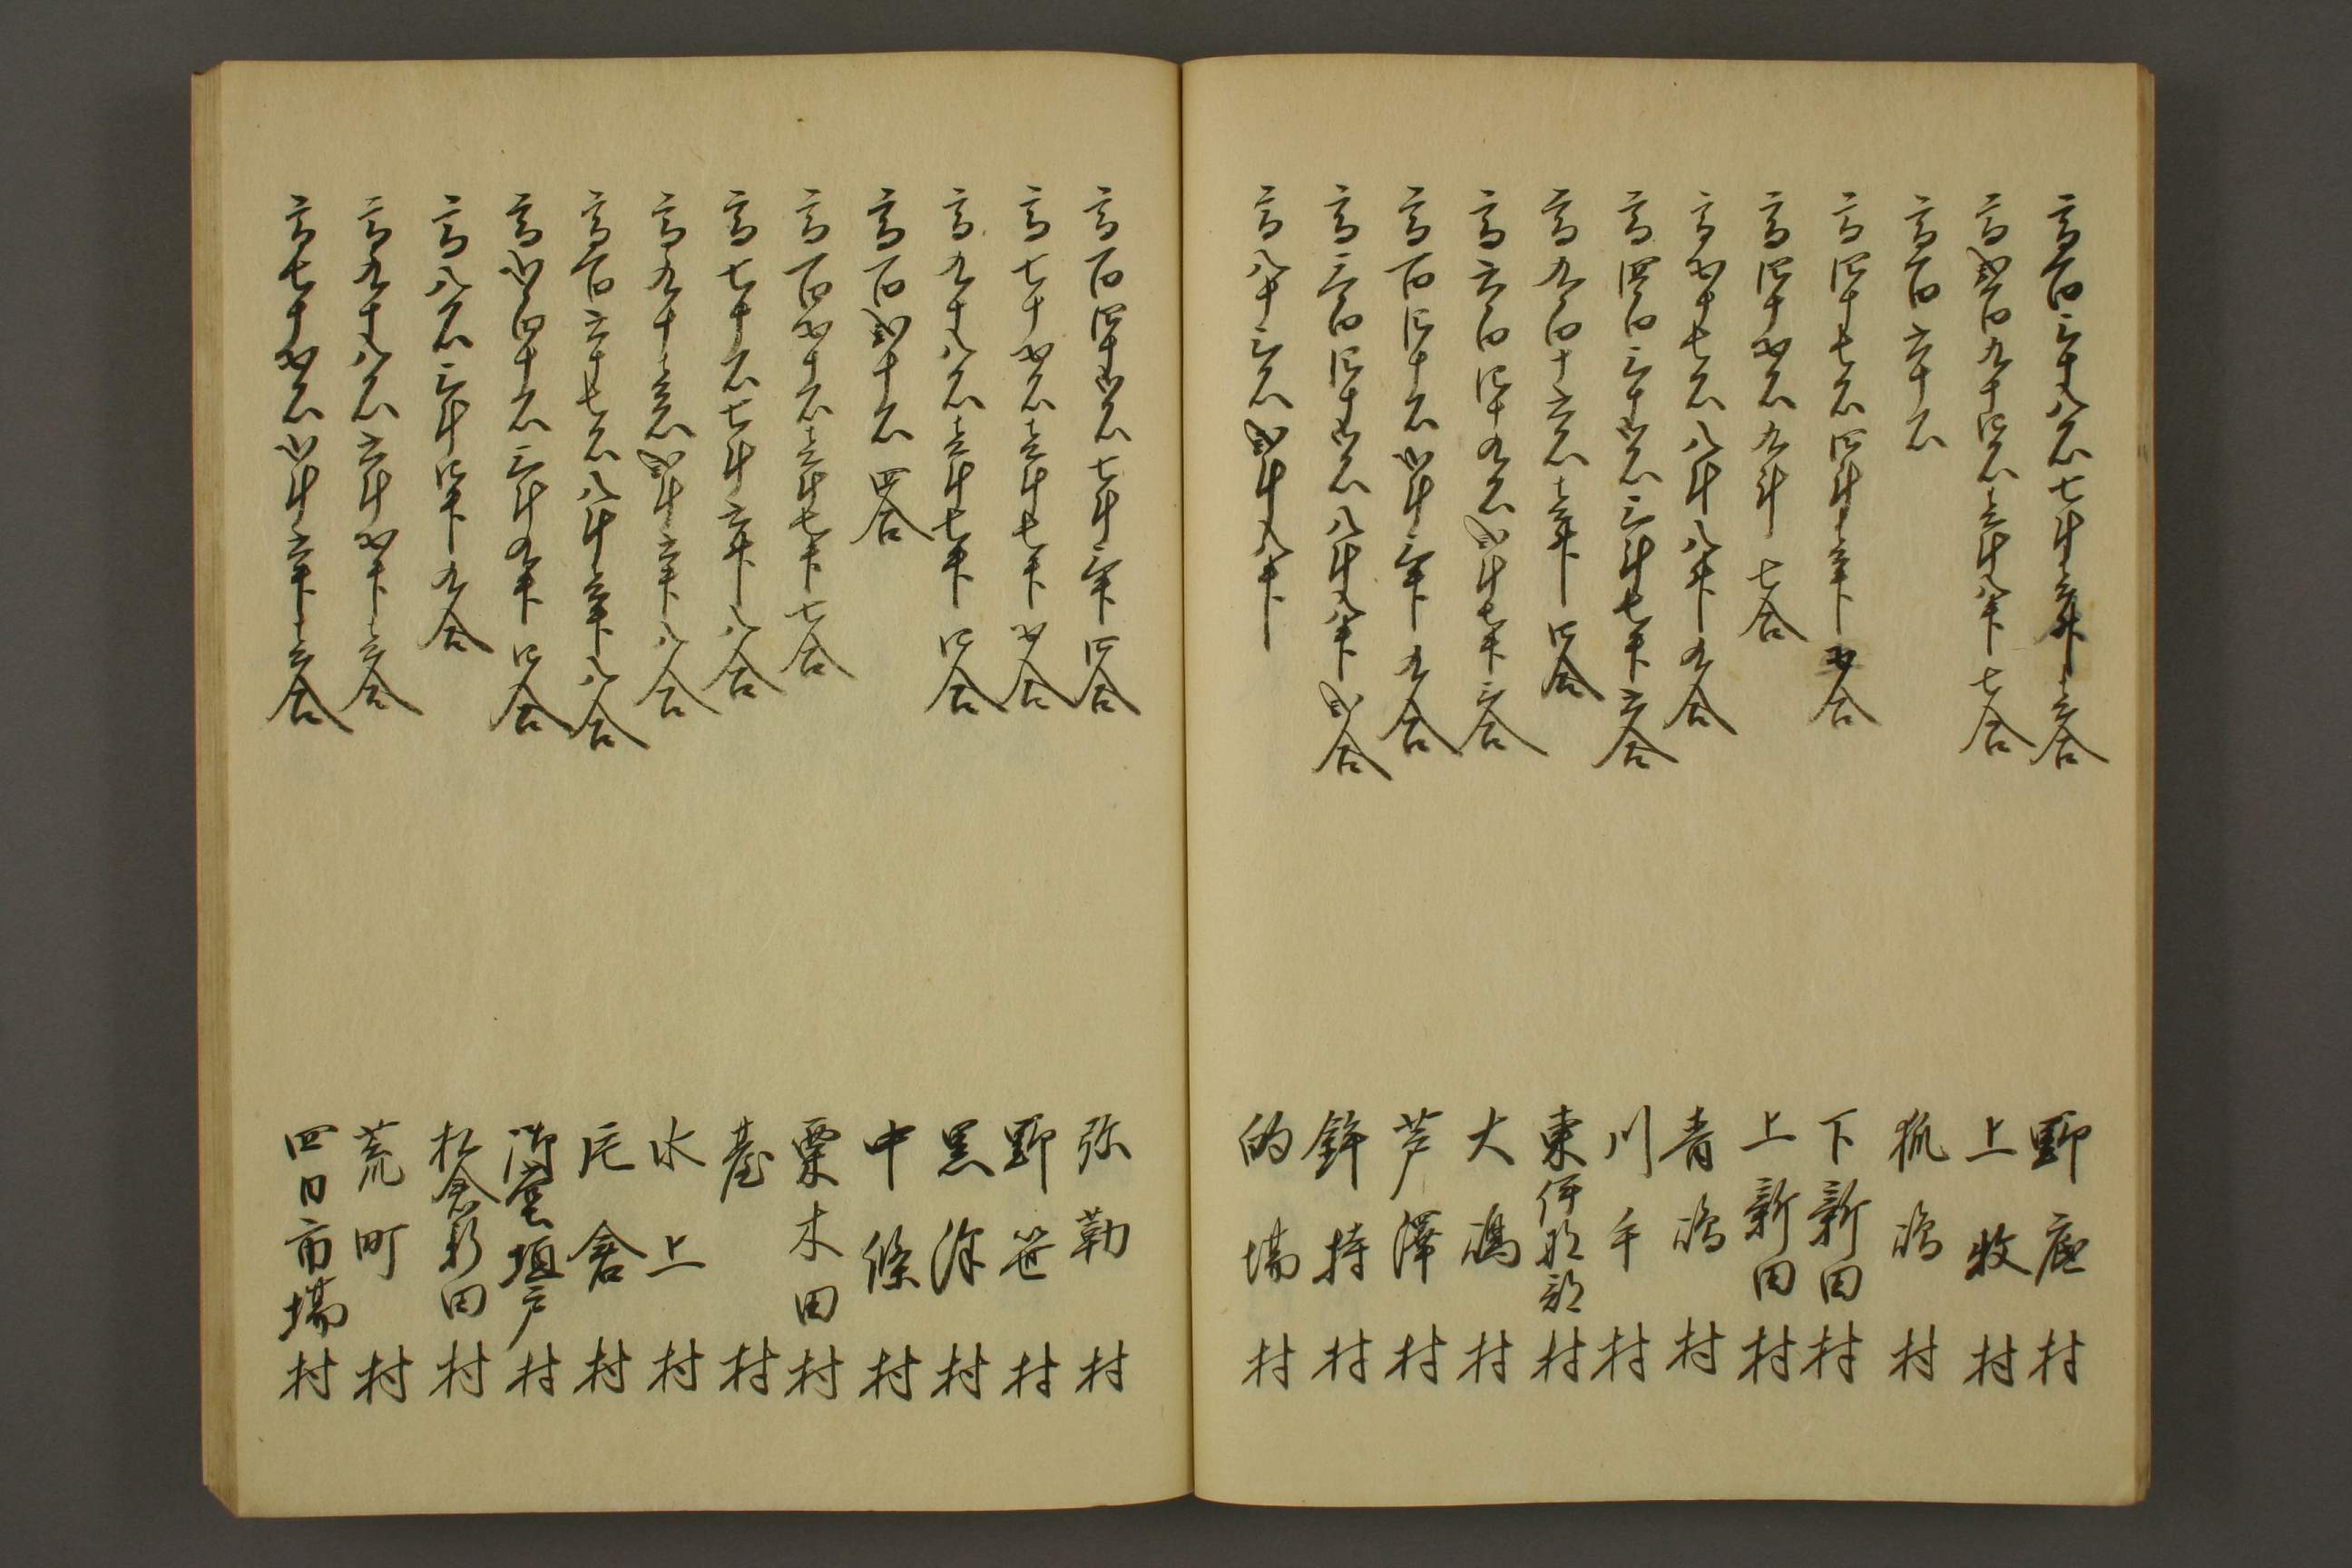 高百三十八石七斗三升三合 野底村
高弐百九十四石壱斗八升七合 上牧村
高百六十石 狐嶋村
高四十七石四斗壱升五合 下新田村
高四十五石九斗七合 上新田村
高五十七石八斗八升九合 青嶋村
高四百三十弐石三斗七升六合 川手村
高九百十六石壱升四合 東伊那部村
高六百四十九石弐斗七升三合 大嶋村
高百四十石弐斗三升九合 芦澤村
高三百四十壱石八斗八升弐合 鉾持村
高八十三石弐斗八升 的場村
高百四十壱石七斗三升四合 弥勒村
高七十五石壱斗七升五合 野笹村
高九十八石壱斗七升四合 黒沢村
高百弐十石四合 中條村
高百五十石壱斗七升七合 栗木田村
高七十石七斗六升八合 臺村
高九十壱石弐斗六升八合 水上村
高百六十七石八斗壱升八合 片倉村
高弐百四十石三斗九升四合 御堂垣戸村
高八石三斗四升九合 松倉新田村
高九十八石六斗五升三合 荒町村
高七十五石弐斗六升三合 四日市場村